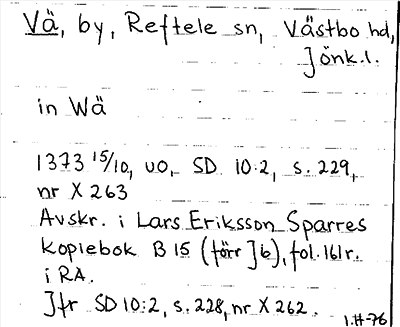 Vä, by, Reftele sn, Västbo hd,
Jönk.l.
in Wä
1373 15/10, uo, SD 10:2, s. 229,
nr X 263
Avskr. i Lars Eriksson Sparres
kopiebok B 15 (förr J b), fol. 161r.
i RA.
Jfr SD 10:2, s. 228, nr X 262.
1.H-76